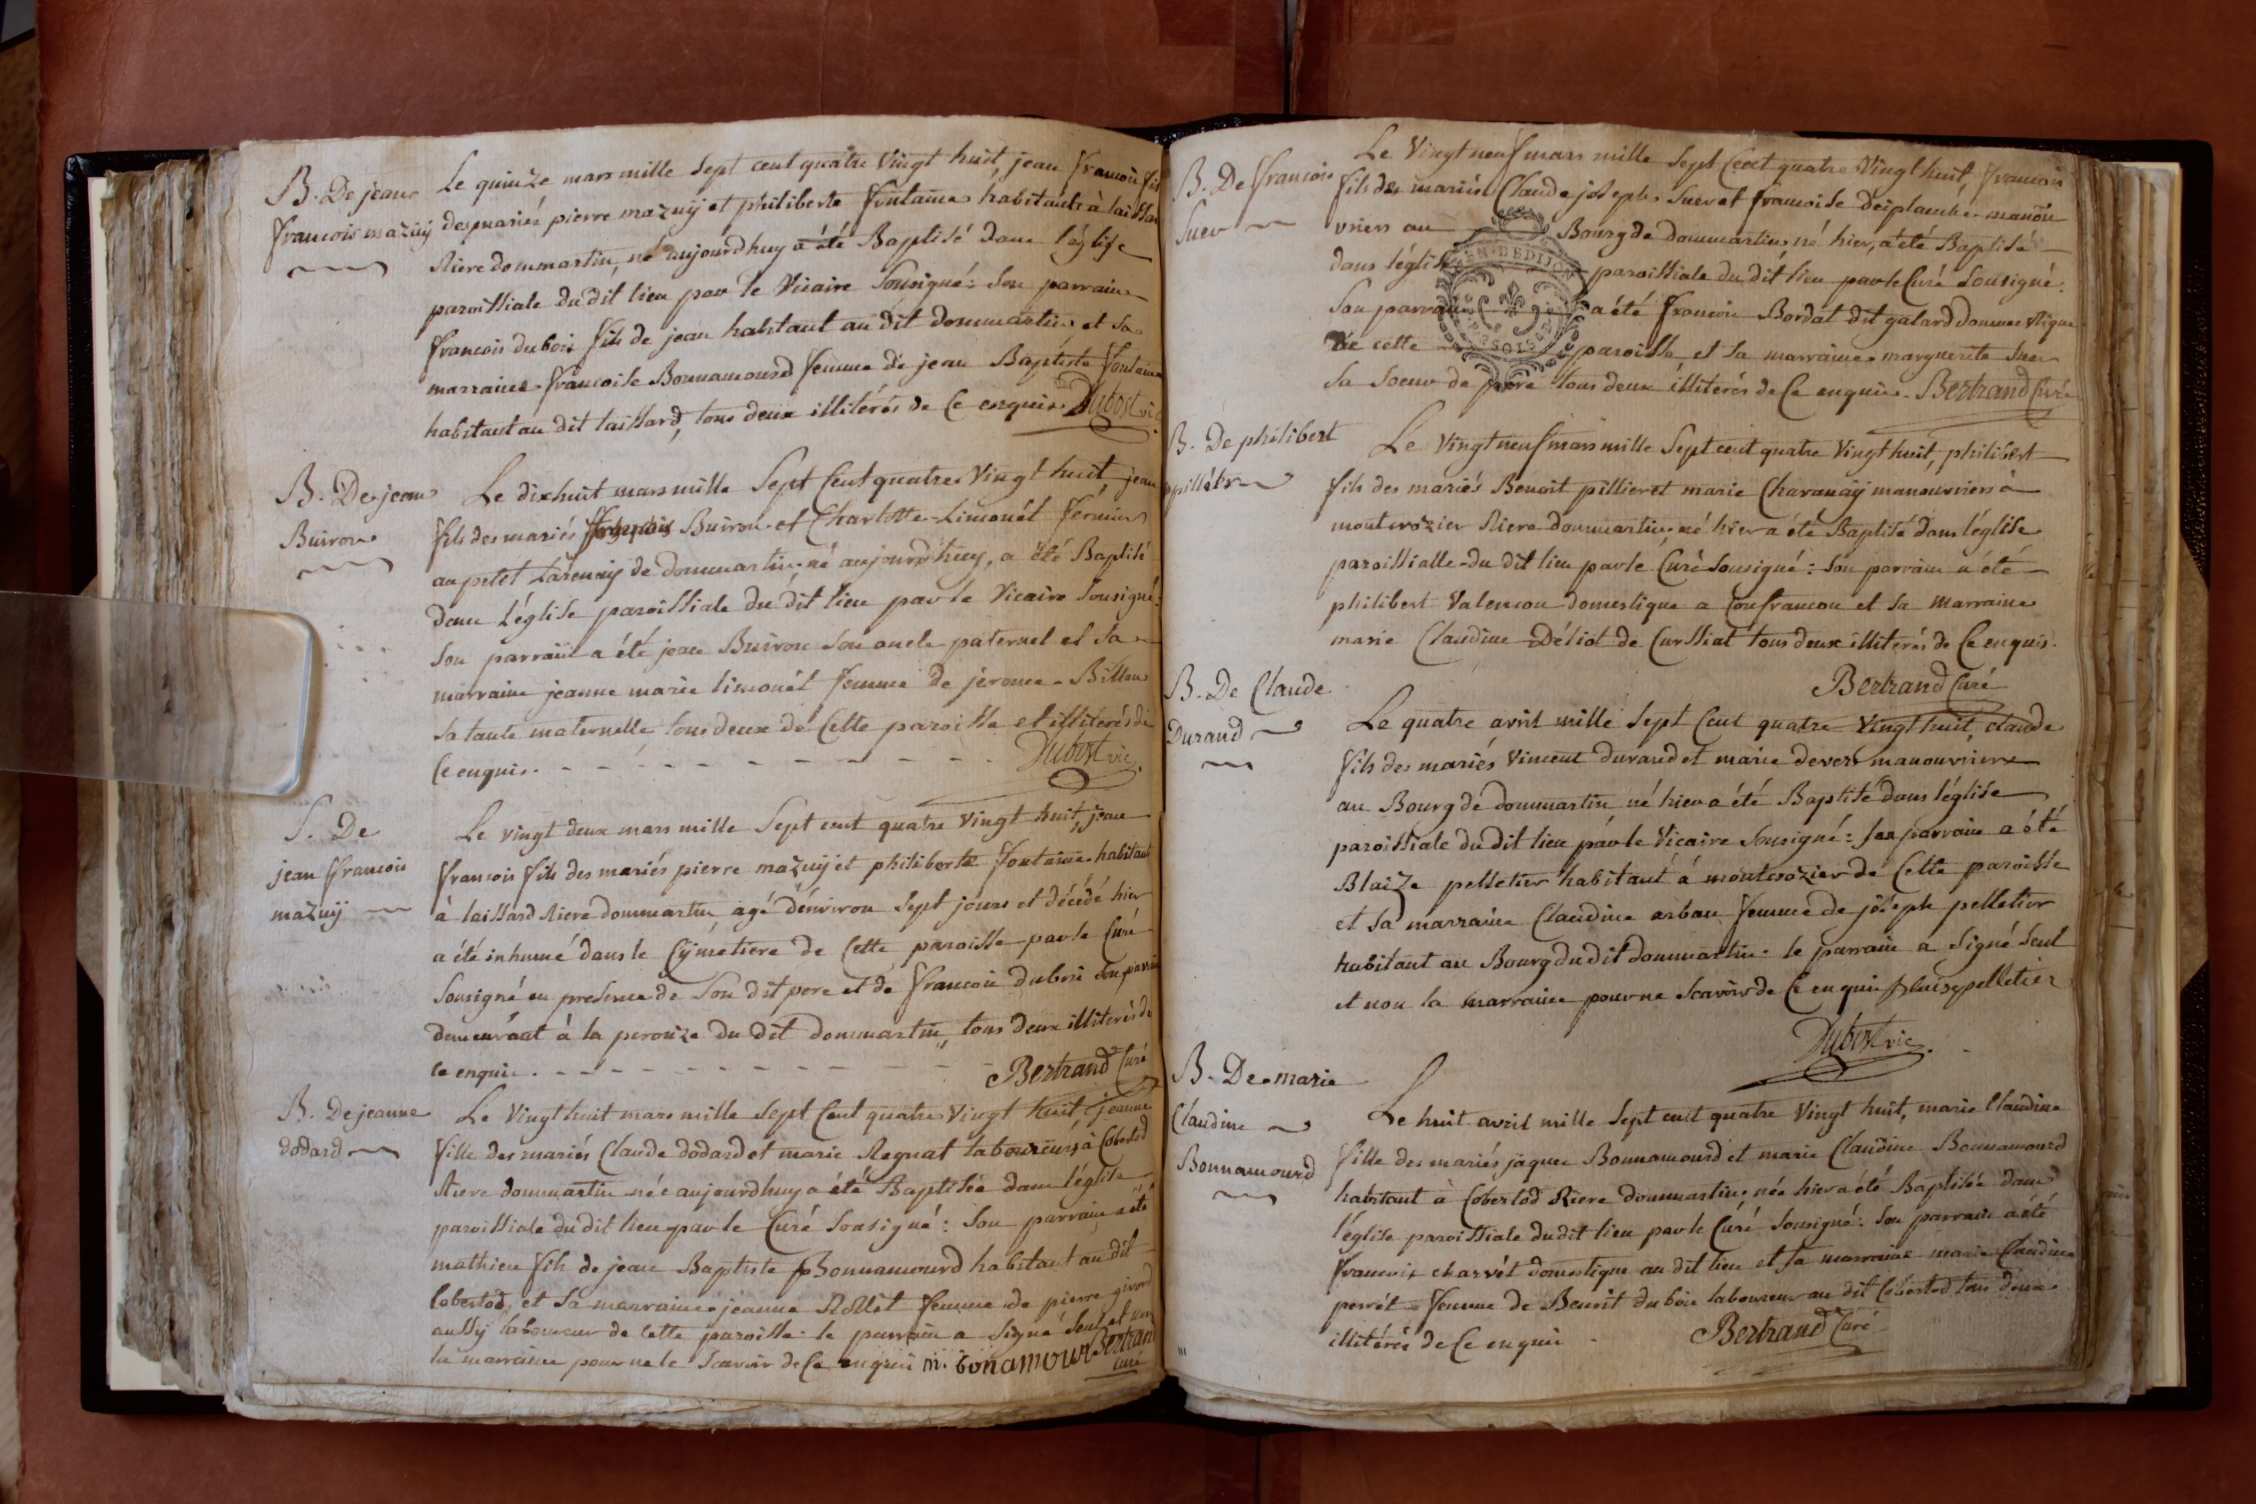 B. De jean
francois mazuÿ
Le quinze mars mille sept cent quatre vingt huit, jean francois fils
des mariés pierre mazuÿ et philiberte fontaine habitants à taillard
Riere dommartin, né aujourdhuy a été Baptisé dans l'église
paroissiale du dit lieu par le Vicaire Sousigné: Son parrain
francois dubois fils de jean habitant au dit dommartin et sa
marraine francoise Bonnamourd femme de jean Baptiste fontaine
habitant au dit taillard, tous deux illitérés de Ce enquis. Dubost vic.
B. De jean
Buiron
Le dixhuit mars mille Sept Cent quatre Vingt huit jean
fils des mariés Buiron et Charlotte Limonét fermiers
au petit tarenaÿ de dommartin né aujourdhuy, a été Baptisé
dans L'église paroissiale du dit lieu par le Vicaire Sousigné:
Son parrain a été jean Buiron Son oncle paternel et Sa
marraine jeanne marie limonét femme de jerome Billon
Sa tante maternelle, tous deux de Cette paroisse et illiterés de
Ce enquis. - - - - - - - - - - Dubost vic.
S. De
jean francois
mazuÿ
Le vingt deux mars mille Sept cent quatre Vingt huit, jean
francois fils des mariés pierre mazuÿ et philiberte fontaine habitants
à taillard Riere dommartin, agé dénviron Sept jours et décédé hier
a été inhumé dans le Cÿmetiere de Cette paroisse par le Curé
Sousigné en presence de Son dit pere et de francois dubois son parrain
demeurant à la perouze du dit dommartin, tous deux illiterés de
ce enquis. - - - - - - - - - - Bertrand Curé
B. De jeanne
dodard
Le Vingt huit mars mille Sept Cent quatre Vingt huit jeanne
fille des mariés Claude dodard et marie Regnat laboureurs à Cobertod
Riere dommartin née aujourdhuy a été Baptisée dans l'église
paroissiale du dit lieu par le Curé Sousigné: Son parrain a été
mathieu fils de jean Baptiste Bonnamourd habitant au dit
Cobertod, et Sa marraine jeanne Rollét femme de pierre givord
aussÿ laboureur de Cette paroisse. le parrain a Signé Seul et non
la marraine pour ne le Scavoir de Ce enquis m. bonamour Bertrand
Curé
B. De francois
Suer
Le Vingt neuf mars mille Sept Cent quatre Vingt huit, francois
fils des mariés Claude joseph Suer et francoise desplanche manou
vriers au Bourg de dommartin né hier, a été Baptisé
dans l'église paroissiale du dit lieu par le Curé Sousigné:
Son parrain a été francois Bordat dit galard domestique
de cette paroisse et Sa marraine marguerite Suer
Sa Soeur de pere tous deux illiterés de Ce enquis. Bertrand Curé
B. De philibert
pilliér
Le Vingt neuf mars mille Sept cent quatre Vingt huit, philibert
fils des mariés Benoit pillier et marie Charanaÿ manouvriers à
montcrozier Riere dommartin, né hier a été Baptisé dans l'église
paroissialle du dit lieu par le Curé Sousigné: Son parrain a été
philibert Valencon domestique a Confrancon et Sa Marraine
marie Claudine Déliot de Curssiat tous deux illiterés de Ce enquis.
Bertrand Curé
B. De Claude
Durand
Le quatre avril mille Sept Cent quatre Vingt huit, claude
fils des mariés Vincent durand et marie devers manouvriers
au Bourg de dommartin né hier a été Baptisé dans l'église
paroissiale du dit lieu par le Vicaire Sousigné: Son parrain a été
Blaize pelletier habitant à montcrozier de Cette paroisse
et Sa marraine Claudine arban femme de joseph pelletier
habitant au Bourg du dit dommartin. le parrain a Signé Seul
et non la marraine pour ne Scavoir de Ce enquis Blaise pelletier
Dubost vic.
B. De marie
Claudine
Bonnamourd
Le huit avril mille Sept cent quatre Vingt huit, marie Claudine
fille des mariés jaques Bonnamourd et marie Claudine Bonnamourd
habitant à Cobertod Riere dommartin, née hier a été Baptisée dans
l'église paroissiale du dit lieu par le Curé Sousigné: Son parrain a été
francois charvét domestique au dit lieu et Sa marraine marie Claudine
perrét femme de Benoit dubois laboureur au dit Cobertod tous deux
illitérés de Ce enquis Bertrand Curé